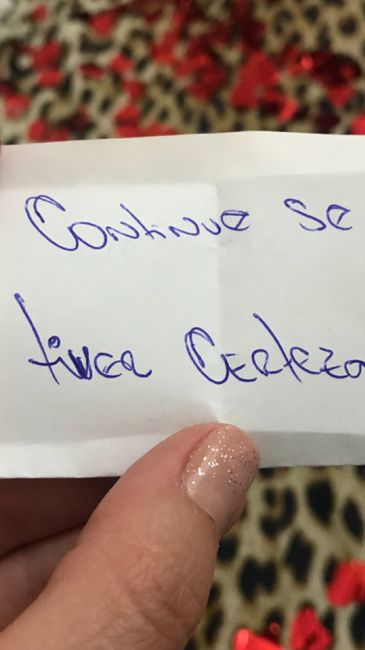 Continue se
tiver Certeza